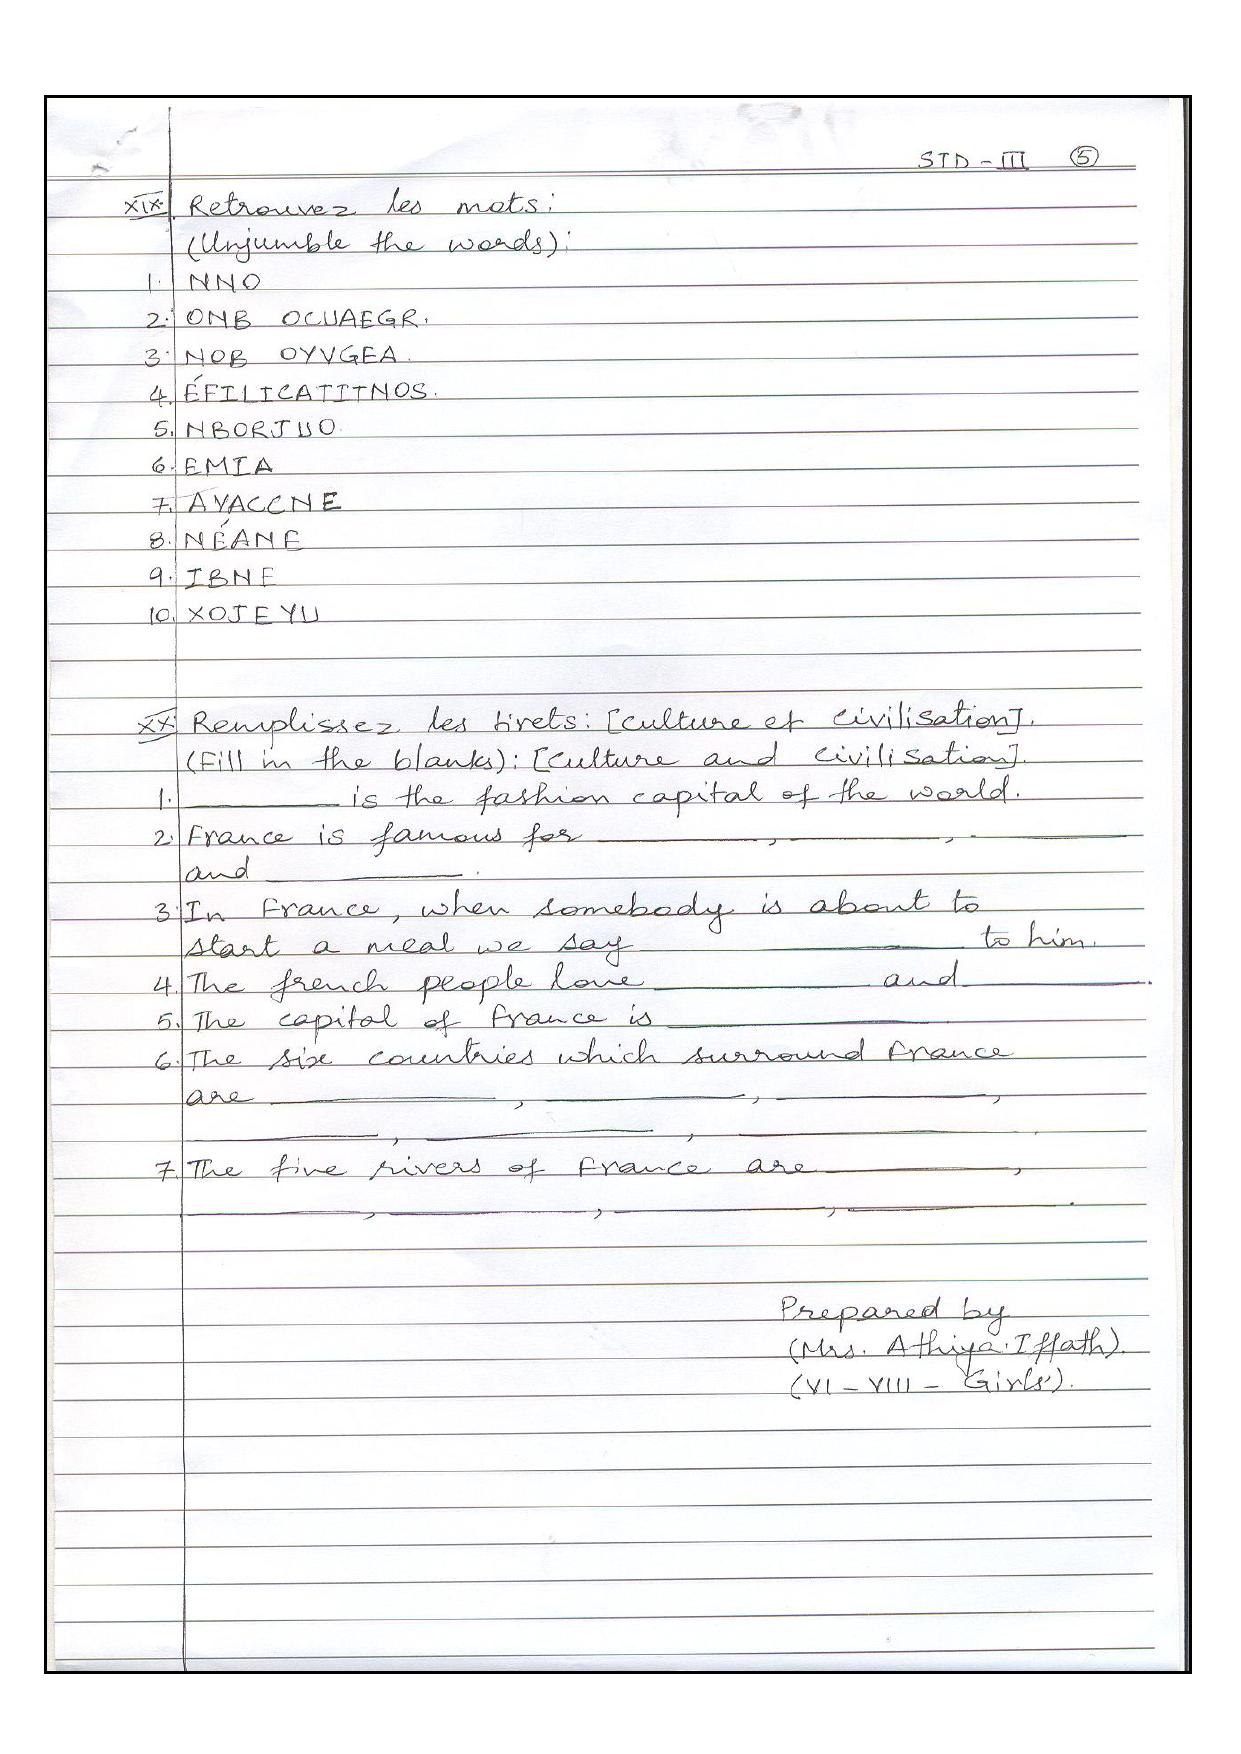 STD - III 5
XIX. Retrouvez les mots:
(Unjumble the words):
1. NNO
2. ONB OCUAEGR.
3. NOB OYVGEA.
4. ÉFILICATITNOS.
5. NBORJUO.
6. EMIA
7. AYACCNE
8. NÉANE
9. IBNE
10. XOJEYU
XX. Remplissez les tirets: [culture et civilisation].
(Fill in the blanks): [culture and civilisation].
1. ________ is the fashion capital of the world.
2. France is famous for ________, ________, ________
and ________.
3. In France, when somebody is about to
start a meal we say ________ to him.
4. The french people love ________ and ________.
5. The capital of france is ________
6. The six countries which surround france
are ________, ________, ________,
________, ________, ________.
7. The five rivers of france are ________,
________, ________, ________, ________.
Prepared by
(Mrs. Athiya.Iffath).
(VI - VIII - Girls').